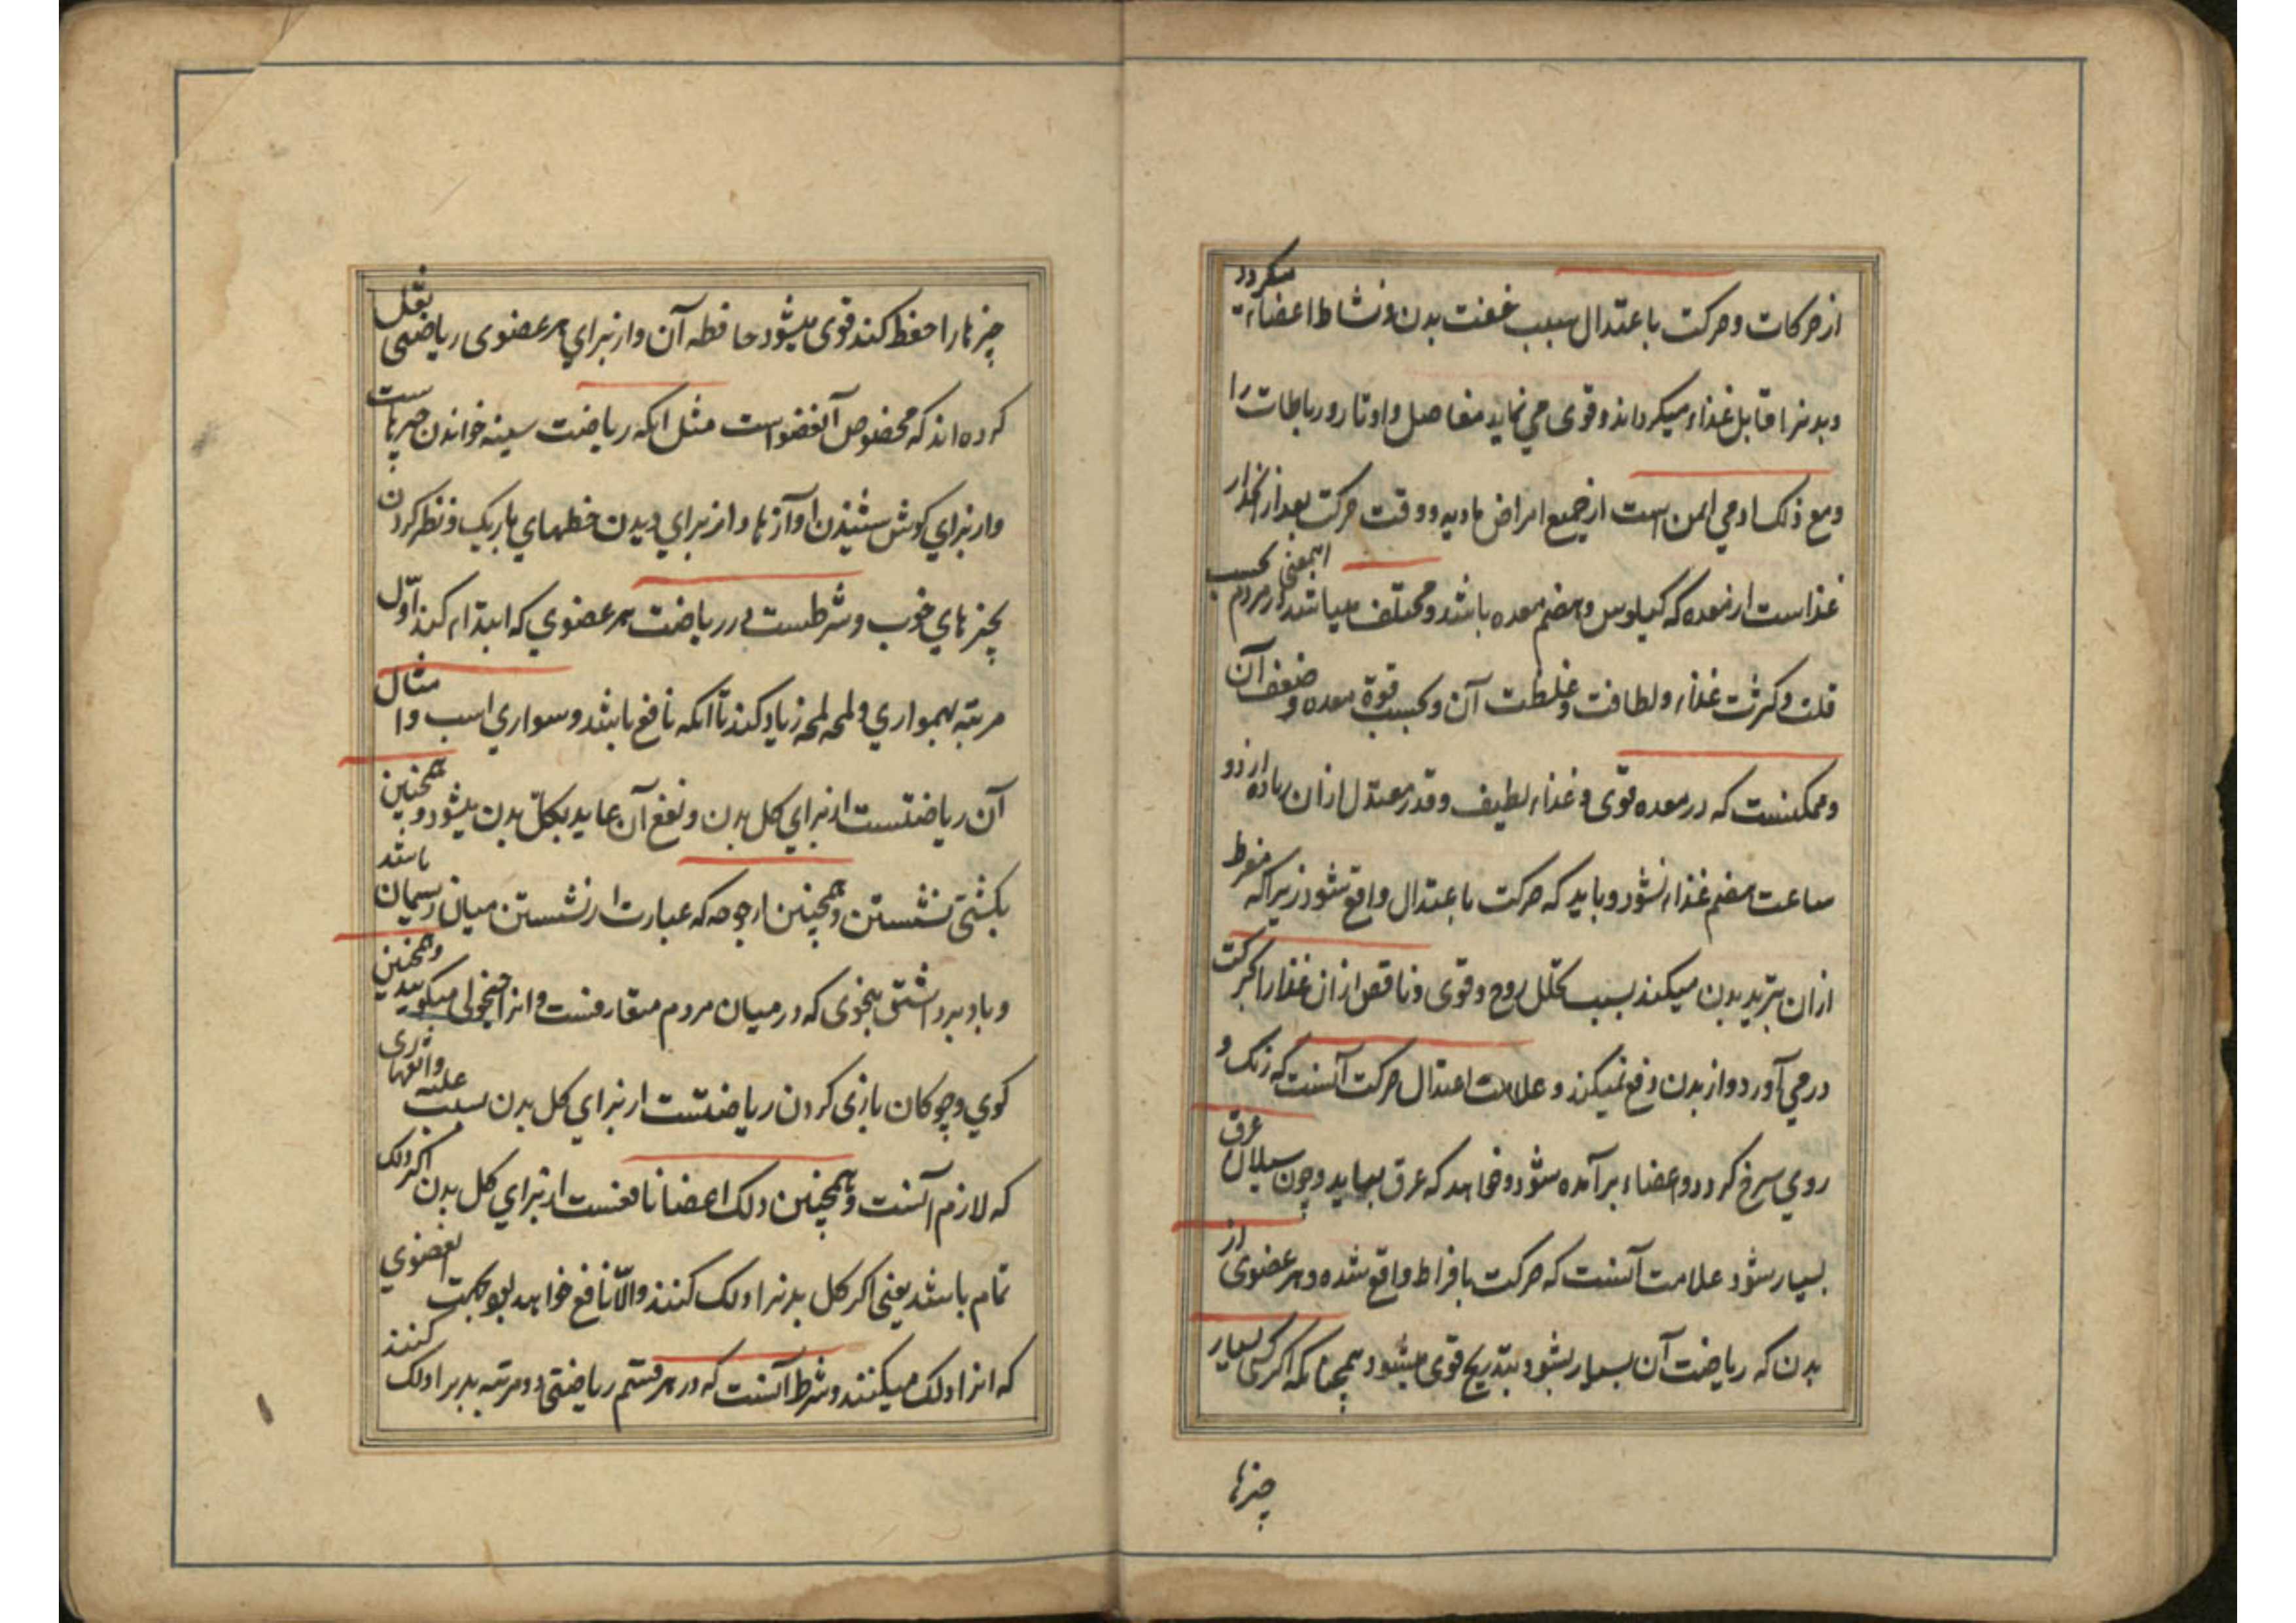 از حرکات و حرکت باعتدال سبب خفت بدن و نشاط اعضاء میکردد
و بدنرا قابل غذاء میکرداند و قوی می نماید مفاصل و اوتار و رباطات را
و مع ذلک ادمی ایمن است از جمیع امراض مادیه و وقت حرکت بعد از انحدار
غذاست از معده که کیلوس و هضم معده باشد و مختلف میباشد اینمعنی در مردم بحسب
قلت و کثرت غذاء و لطافت و غلظت آن و بحسب قوة معده و ضعف آن
و ممکنست که در معده قوی و غذاء لطیف و قدر معتدل ازان زیاده از دو
ساعت هضم غذاء نشود و باید که حرکت باعتدال واقع شود زیرا که مفرط
ازان تبرید بدن میکند بسبب تحلل روح و قوی و ناقص ازان غذا را بحرکت
در می آورد و از بدن دفع نمیکند و علامت اعتدال حرکت آنست که رنک و
روی سرخ کردد و اعضاء برآمده شود و خواهد که عرق بیاید و چون سیلان عرق
بسیار شود علامت آنست که حرکت بافراط واقع شده و هر عضوی از
بدن که ریاضت آن بسیار بشود بتدریج قوی میشود همچنانکه اکر کسی بسیار
چیزها
چیزها را حفظ کند قوی میشود حافظه آن و از برای هر عضوی ریاضتی نقل
کرده اند که مخصوص آنعضو است مثل انکه ریاضت سینه خواندن چیزهاست
و از برای کوش شنیدن اوازها و از برای دیدن خطهای باریک و نظر کردن
بچیزهای خوب و شرطست در ریاضت هر عضوی که ابتداء کند اوّل
مرتبه بهمواری و لمحه لمحه زیاد کند تا انکه نافع باشد و سواری اسب و امثال
آن ریاضتست از برای کل بدن و نفع آن عاید بکل بدن میشود و همچنین
بکشتی نشستن و همچنین ارجوحه که عبارت از نشستن میان ریسمان باشد
و باد برداشتن بنحوی که در میان مردم متعارفست و انرا میکویند و همچنین
کوی و چوکان بازی کردن ریاضتست از برای کل بدن بسبب
که لازم آنست و همچنین دلک اعضا نافعست از برای کل بدن اکر دلک
تمام باشد یعنی اکر کل بدنرا دلک کنند والّا نافع خواهد بود بجهت آنعضوی
که انرا دلک میکنند و شرط آنست که در هر قسم ریاضتی دو مرتبه بدنرا دلک کنند